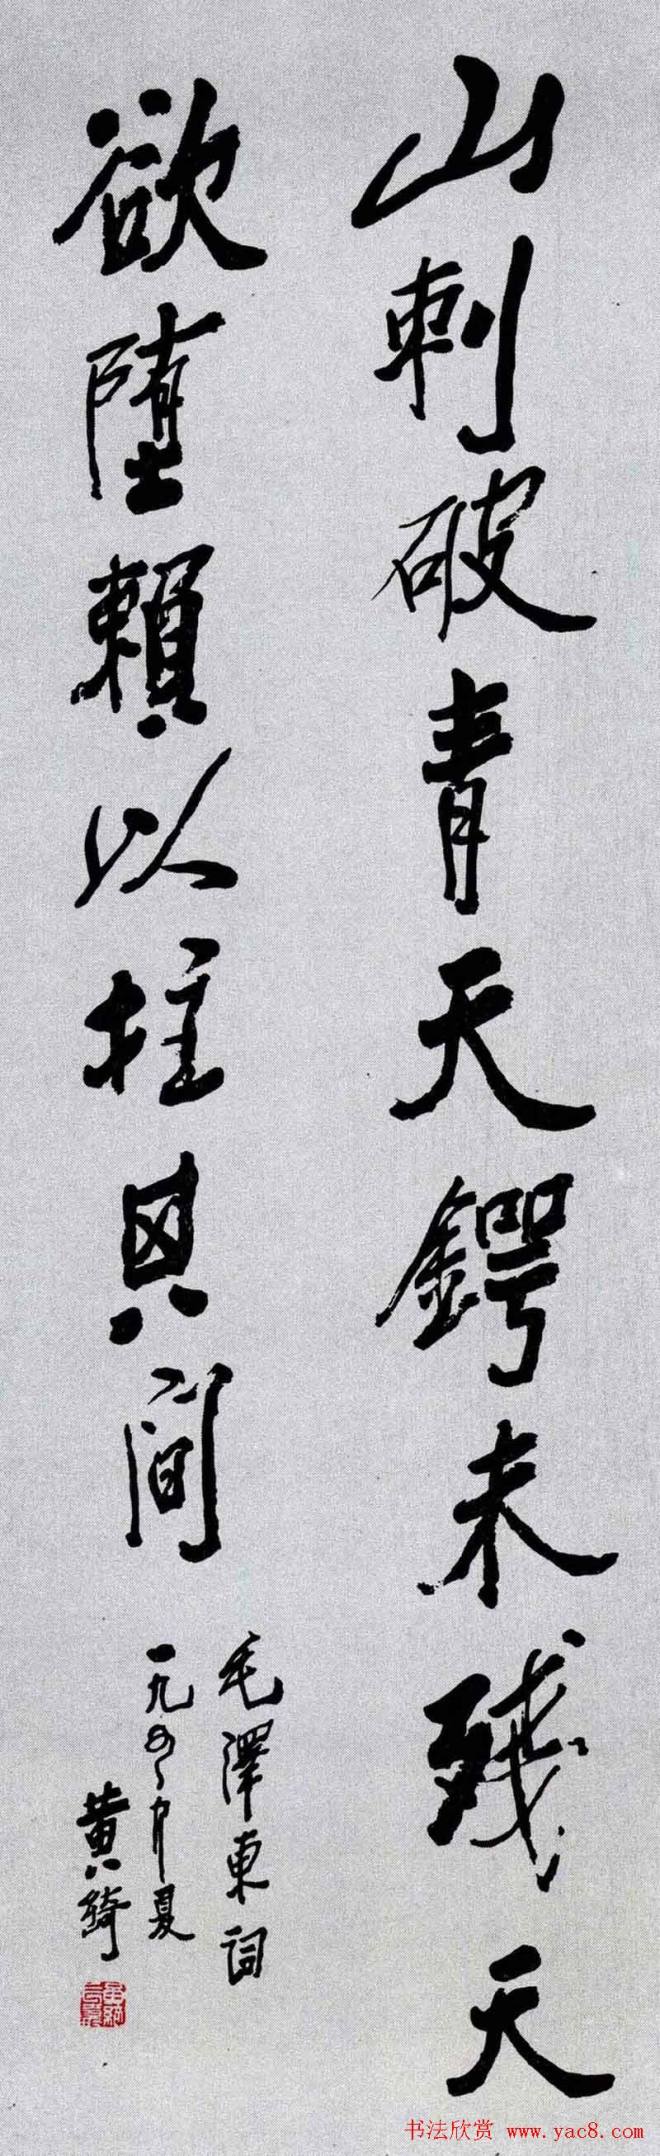 山刺破青天鍔未殘天
欲墮賴以拄其间
毛澤東詞
一九
夏
黄綺
书法欣赏 www.yac8.com